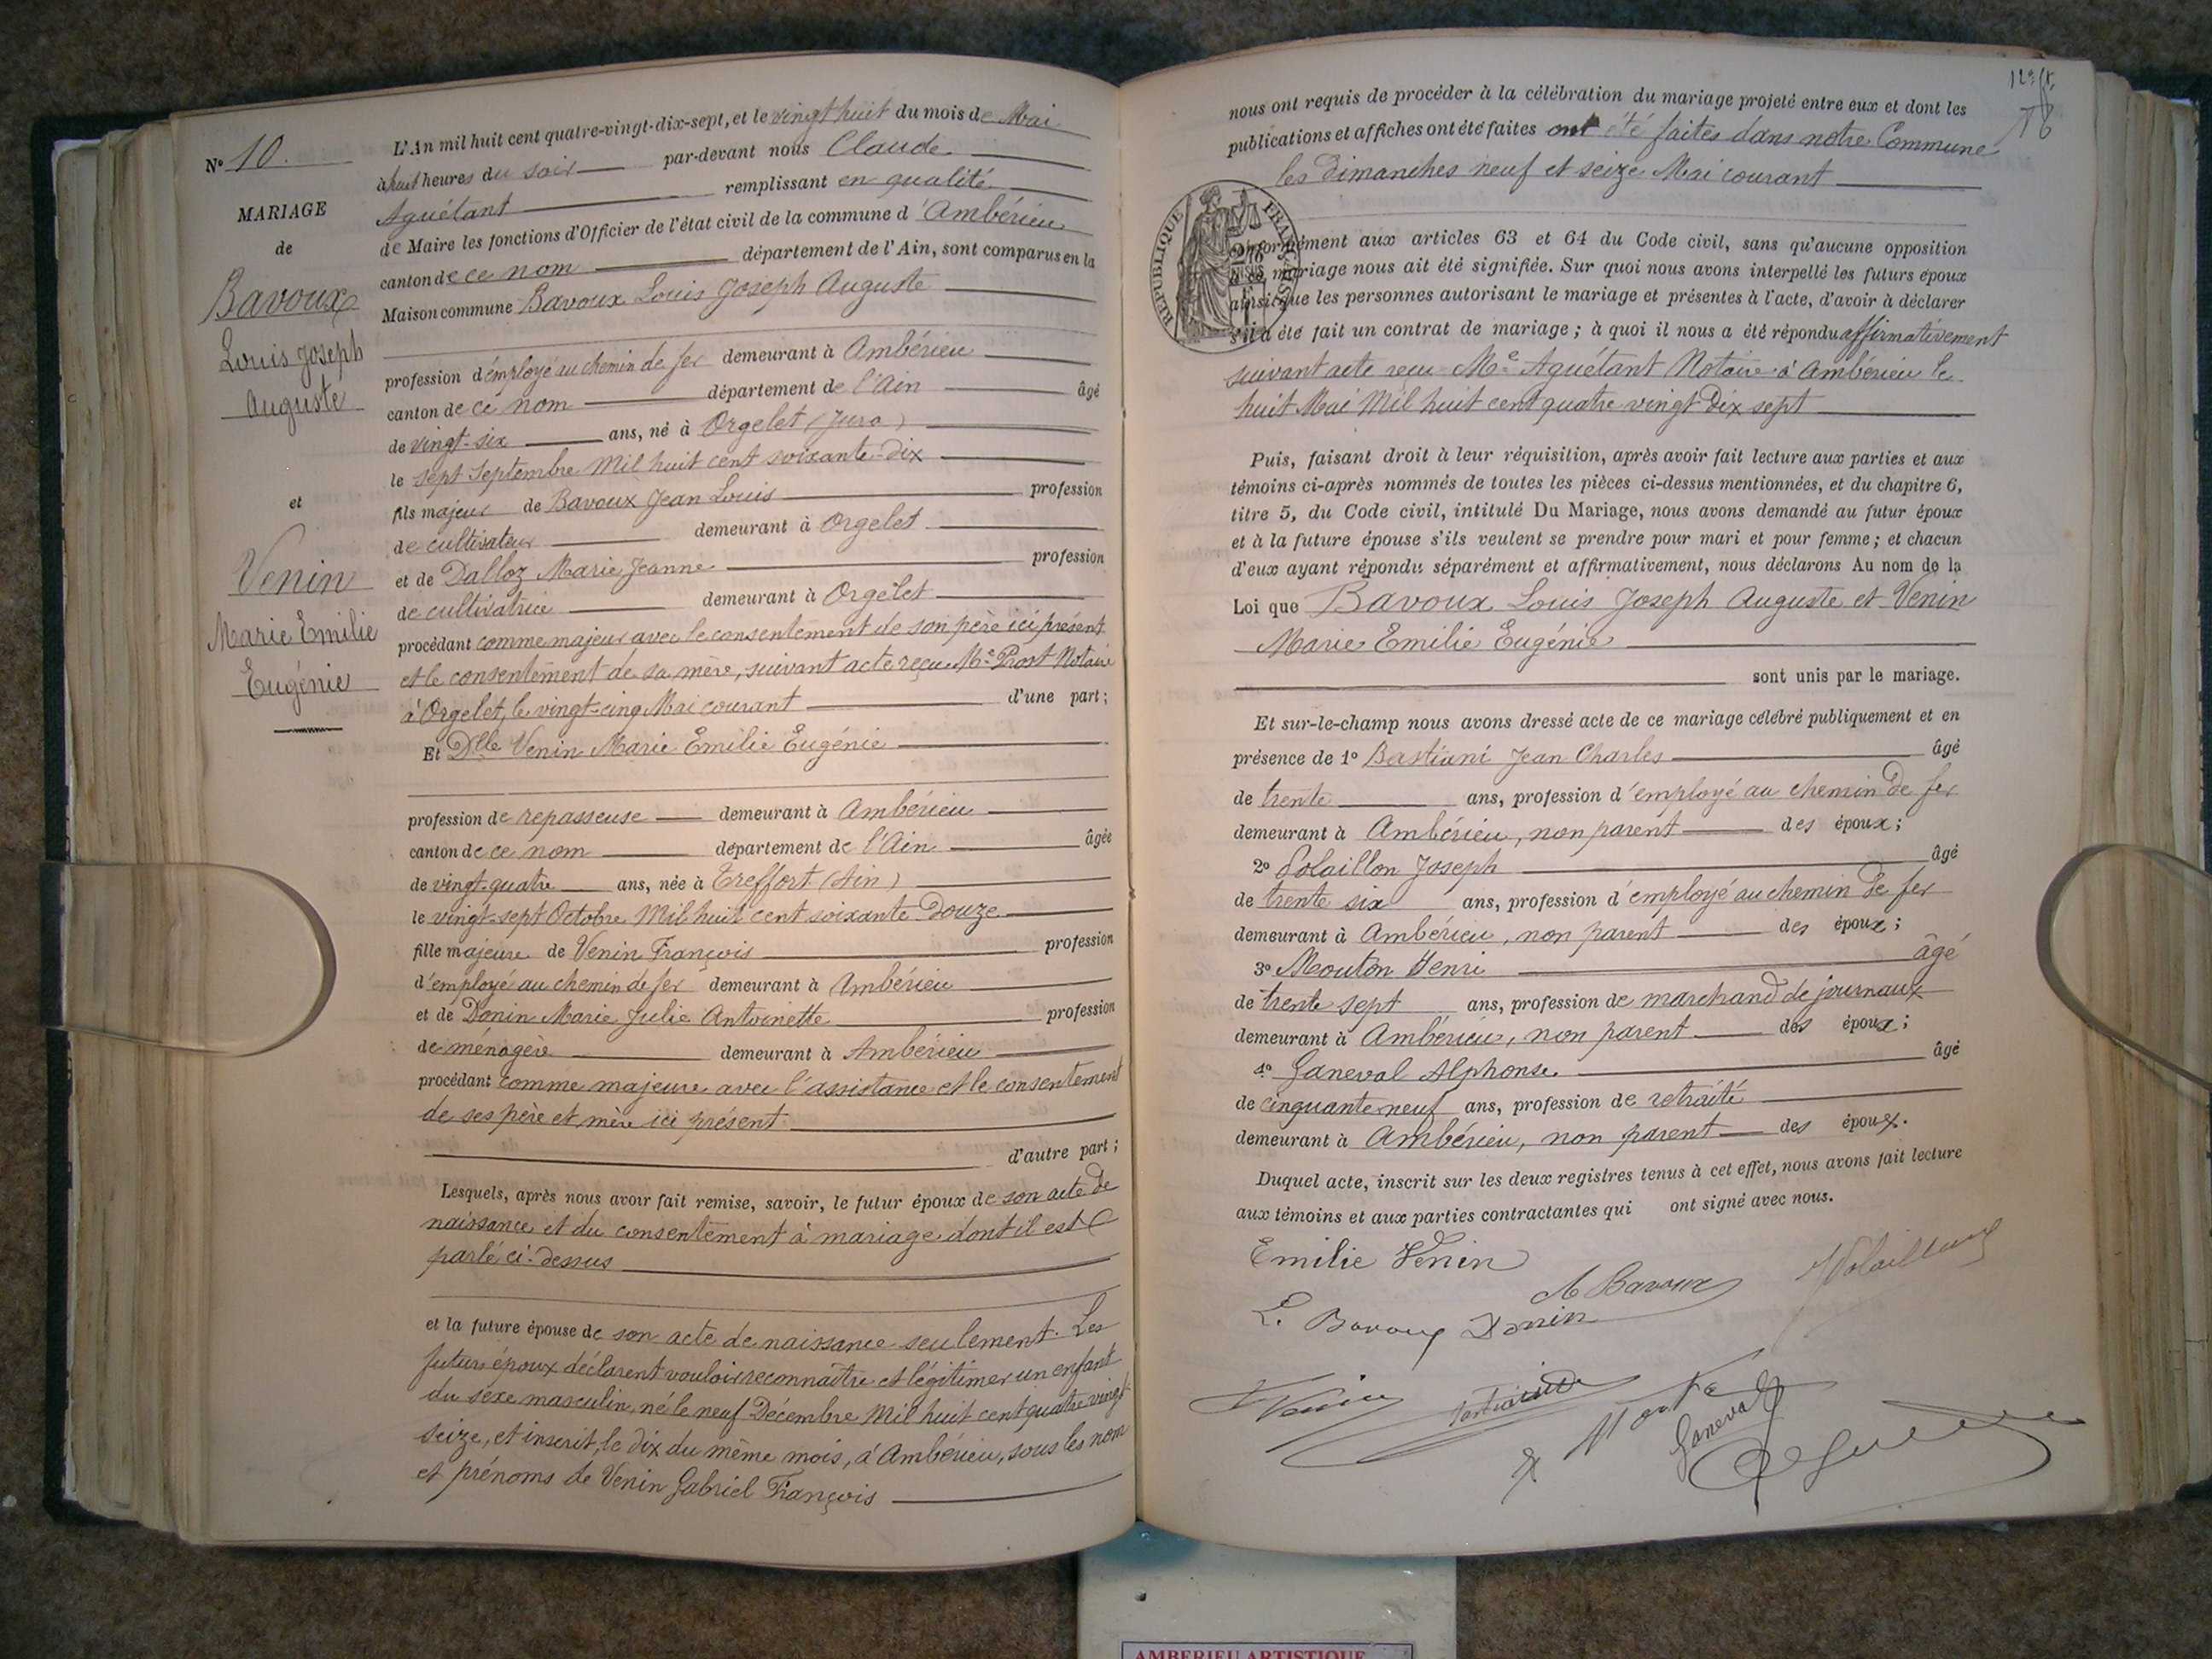 Nº 10.
MARIAGE
de
Bavoux
Louis Joseph
Auguste
et
Venin
Marie Emilie
Eugénie
L'An mil huit cent quatre-vingt-dix-sept, et le vingt huit du mois de Mai
à huit heures du soir par-devant nous Claude
Aguétant remplissant en qualité
de Maire les fonctions d'Officier de l'état civil de la commune d'Ambérieu
canton de ce nom département de l'Ain, sont comparus en la
Maison commune Bavoux Louis Joseph Auguste
profession d'employé au chemin de fer demeurant à Ambérieu
canton de ce nom département de l'Ain âgé
de vingt-six ans, né à Orgelet (Jura)
le sept Septembre Mil huit cent soixante-dix
fils majeur de Bavoux Jean Louis profession
de cultivateur demeurant à Orgelet
et de Dalloz Marie Jeanne profession
de cultivatrice demeurant à Orgelet
procédant comme majeur avec le consentement de son père ici présent
et le consentement de sa mère, suivant acte reçu Me Prost Notaire
à Orgelet, le vingt-cinq Mai courant d'une part;
Et Dlle Venin Marie Emilie Eugénie
profession de repasseuse demeurant à Ambérieu
canton de ce nom département de l'Ain âgée
de vingt-quatre ans, née à Treffort (Ain)
le vingt-sept Octobre Mil huit cent soixante Douze
fille majeure de Venin François profession
d'employé au chemin de fer demeurant à Ambérieu
et de Donin Marie Julie Antoinette profession
de ménagère demeurant à Ambérieu
procédant comme majeure avec l'assistance et le consentement
de ses père et mère ici présent
d'autre part;
Lesquels, après nous avoir fait remise, savoir, le futur époux de son acte de
naissance et du consentement à mariage dont il est
parlé ci-dessus
et la future épouse de son acte de naissance seulement. Les
futurs époux déclarent vouloir reconnaître et légitimer un enfant
du sexe masculin, né le neuf Décembre Mil huit cent quatre vingt
seize, et inscrit, le dix du même mois, à Ambérieu, sous les nom
et prénoms de Venin Gabriel François
78
nous ont requis de procéder à la célébration du mariage projeté entre eux et dont les
publications et affiches ont été faites ont été faites dans notre Commune
les Dimanches neuf et seize Mai courant
RÉPUBLIQUE FRANÇAISE
conformément aux articles 63 et 64 du Code civil, sans qu'aucune opposition
à ce mariage nous ait été signifiée. Sur quoi nous avons interpellé les futurs époux
ainsi que les personnes autorisant le mariage et présentes à l'acte, d'avoir à déclarer
s'il a été fait un contrat de mariage; à quoi il nous a été répondu affirmativement
suivant acte reçu Me Aguétant Notaire à Ambérieu le
huit Mai Mil huit cent quatre vingt Dix sept
Puis, faisant droit à leur réquisition, après avoir fait lecture aux parties et aux
témoins ci-après nommés de toutes les pièces ci-dessus mentionnées, et du chapitre 6,
titre 5, du Code civil, intitulé Du Mariage, nous avons demandé au futur époux
et à la future épouse s'ils veulent se prendre pour mari et pour femme; et chacun
d'eux ayant répondu séparément et affirmativement, nous déclarons Au nom de la
Loi que Bavoux Louis Joseph Auguste et Venin
Marie Emilie Eugénie
sont unis par le mariage.
Et sur-le-champ nous avons dressé acte de ce mariage célébré publiquement et en
présence de 1º Bastiani Jean Charles âgé
de trente ans, profession d'employé au chemin de fer
demeurant à Ambérieu, non parent des époux;
2º Volaillon Joseph âgé
de trente six ans, profession d'employé au chemin de fer
demeurant à Ambérieu, non parent des époux;
3º Mouton Henri âgé
de trente sept ans, profession de marchand de journaux
demeurant à Ambérieu, non parent des époux;
4º Ganeval Alphonse. âgé
de cinquante neuf ans, profession de retraité
demeurant à Ambérieu, non parent des époux.
Duquel acte, inscrit sur les deux registres tenus à cet effet, nous avons fait lecture
aux témoins et aux parties contractantes qui ont signé avec nous.
Emilie Venin
A Bavoux
Volaillon
L. Bavoux Donin
Venin
Ganeval
AMBERIEU ARTISTIQUE